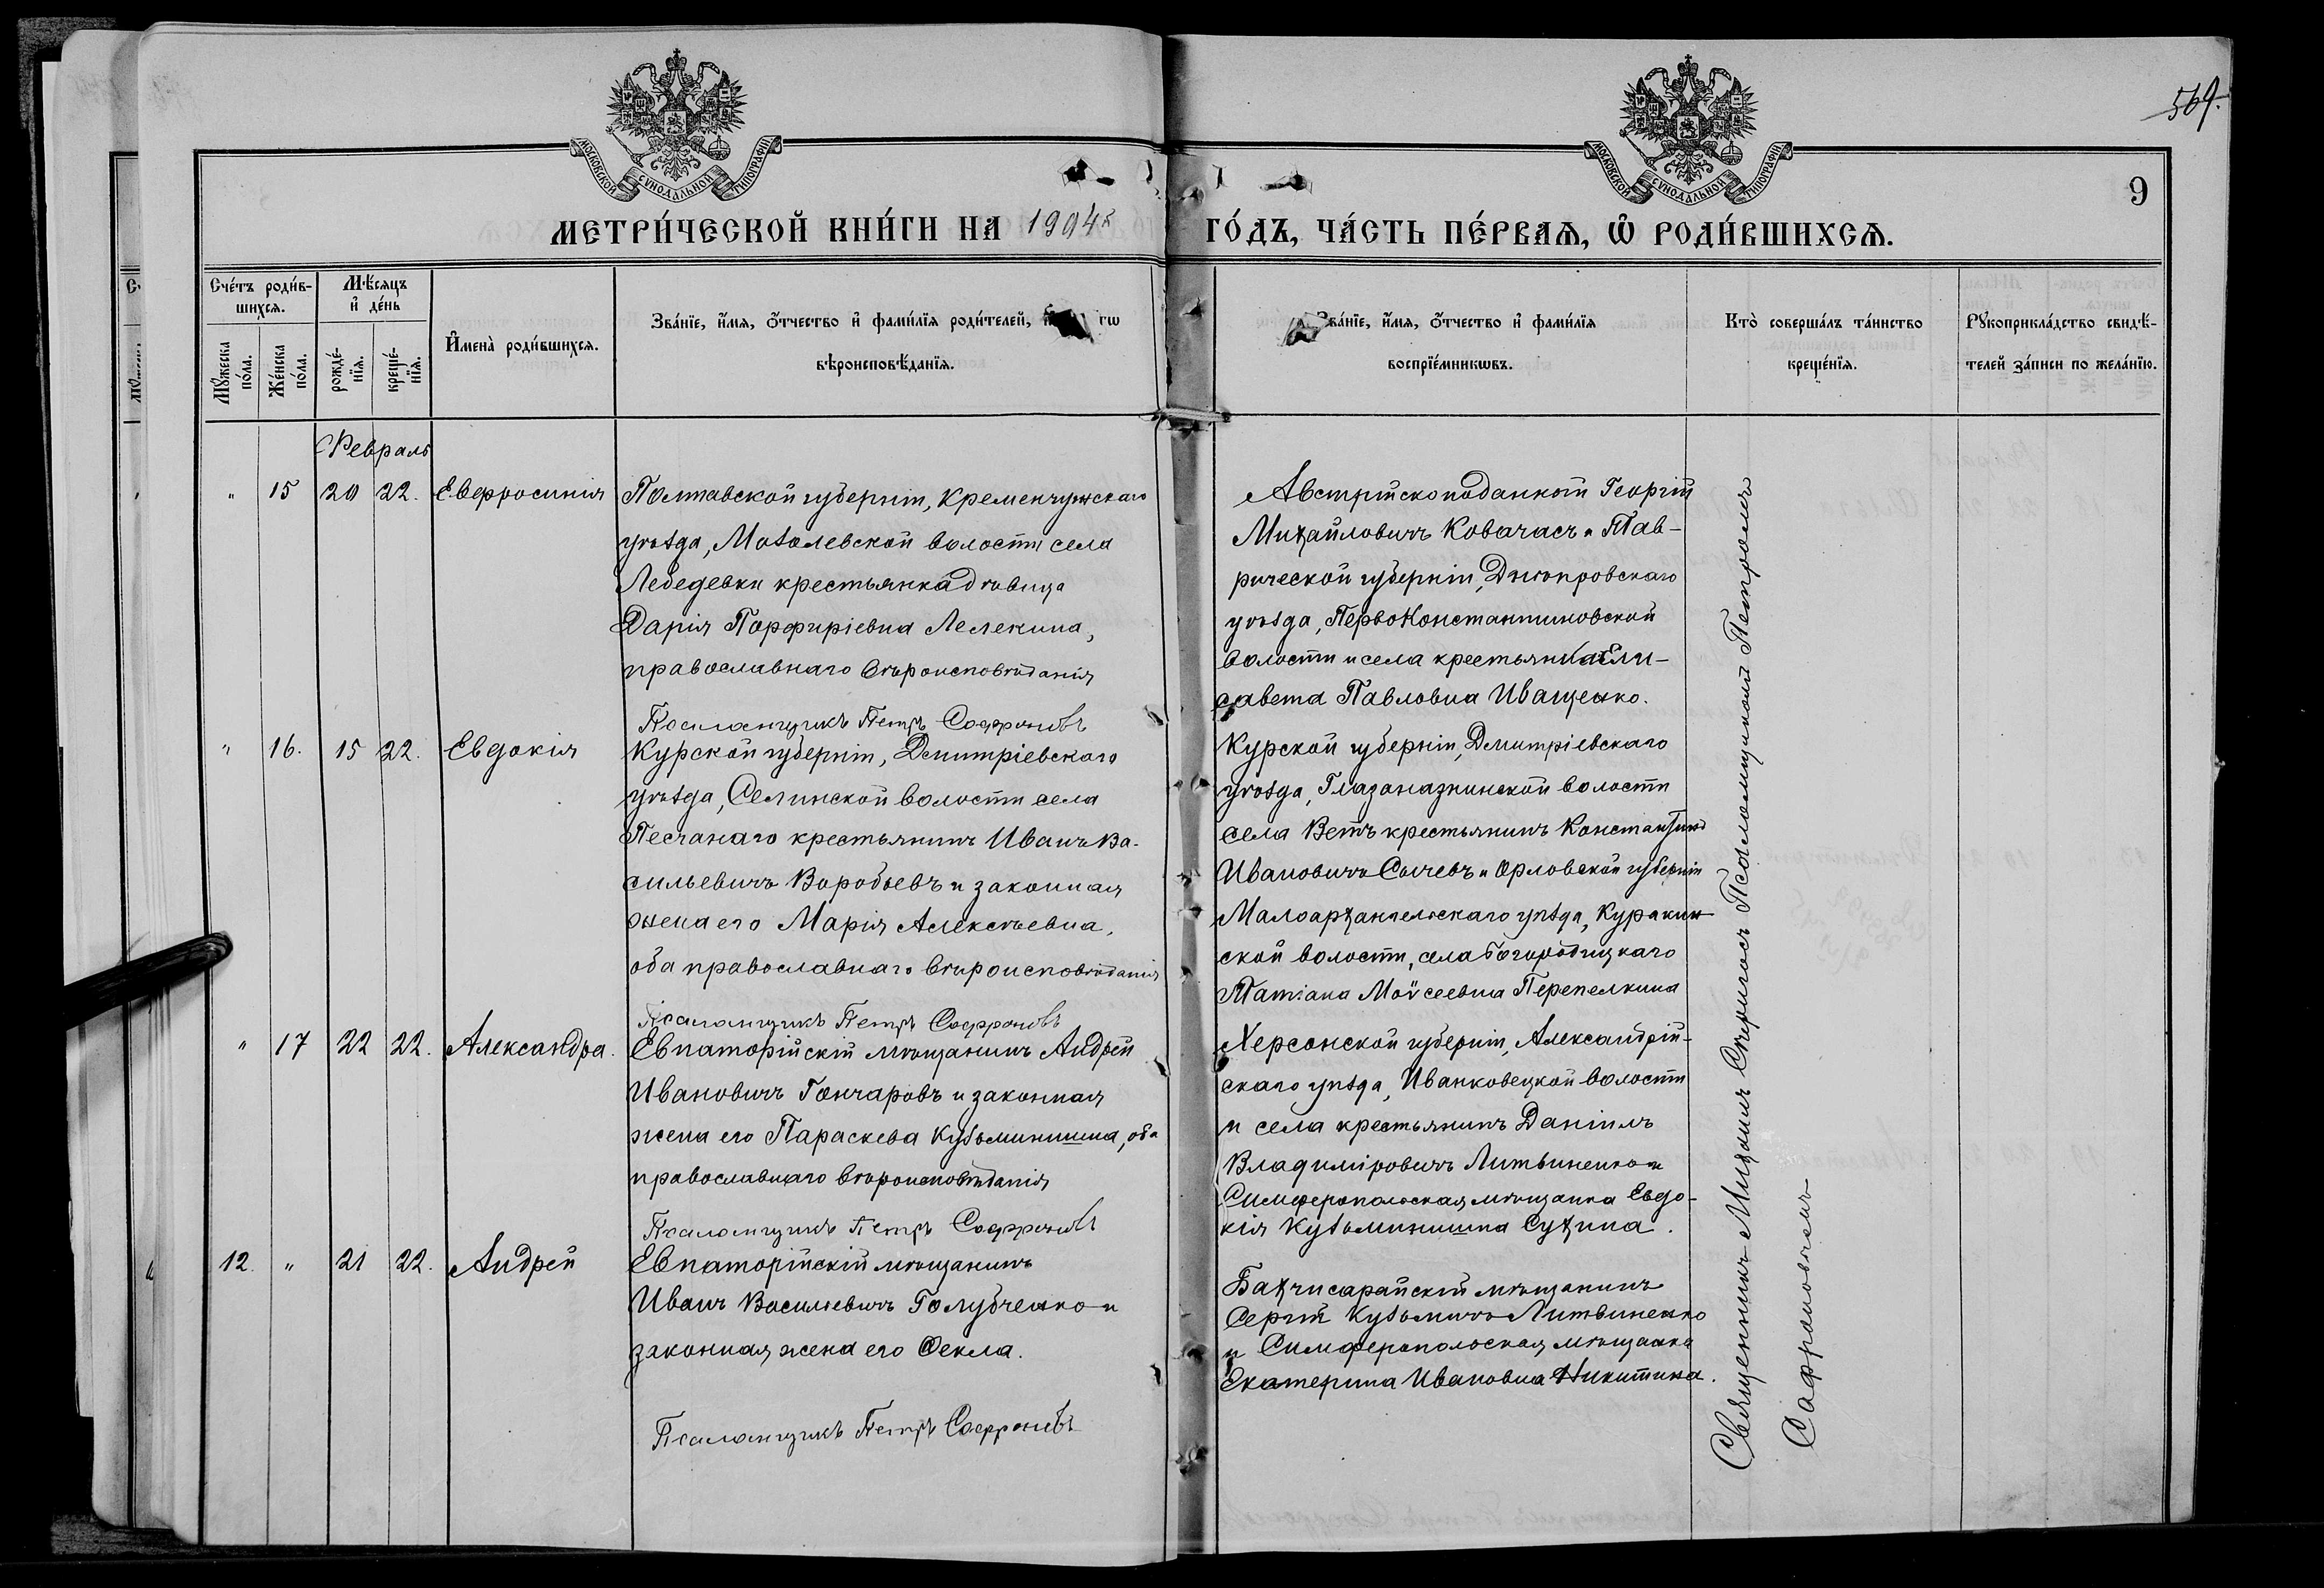 569.
МОСКОВСКОЙ СѴНОДАЛЬНОЙ ТИПОГРАФІИ
МОСКОВСКОЙ СѴНОДАЛЬНОЙ ТИПОГРАФІИ
9
МЕТРИ́ЧЕСКОЙ КНИ́ГИ НА 1904й ГО́ДЪ, ЧА́СТЬ ПЕ́РВАѦ, Ѽ РОДИ́ВШИХСѦ.
Сче́тъ роди́в-
шихсѧ.
Мꙋ́жеска по́ла.
Же́нска по́ла.
Мѣ́сяцъ и де́нь
рожде́-
нїѧ.
креще́-
нїѧ.
Имена̀ роди́вшихсѧ.
Зва́нїе, и́мѧ, о́тчество и фами́лїѧ роди́телей,
вѣроисповѣ́данїѧ.
Зва́нїе, и́мѧ, о́тчество и фами́лїѧ
воспрїе́мникѡвъ.
Кто̀ соверша́лъ та́инство
креще́нїѧ.
Рꙋкоприкла́дство свидѣ́-
телей за́писи по жела́нїю.
Февраль
" 15 20 22. Евфросинія
Полтавской губерніи, Кременчужскаго
уѣзда, Мозолевской волости села
Лебедевки крестьянка дѣвица
Дарія Порфиріевна Лелекина,
православнаго вѣроисповѣданія
Псаломщикъ Петръ Софроновъ
Австрійскоподанный Георгій
Михайловичъ Ковачасъ и Тав-
рической губерніи, Днѣпровскаго
уѣзда, ПервоКонстантиновской
волости и села крестьянка Ели-
савета Павловна Иващенко.
" 16. 15 22. Евдокія
Курской губерніи, Дмитріевскаго
уѣзда, Селинской волости села
Песчанаго крестьянинъ Иванъ Ва-
сильевичъ Воробьевъ и законная
жена его Марія Алексѣевна,
оба православнаго вѣроисповѣданія
Псаломщикъ Петръ Софроновъ
Курской губерніи, Дмитріевскаго
уѣзда, волости
села Ветъ крестьянинъ Константинъ
Ивановичъ Сычевъ и Орловской губерніи
Малоархангельскаго уѣзда, Куракин-
ской волости, села Богородицкаго
Татіана Моѵсеевна Перепелкина
" 17 22 22. Александра.
Евпаторійскій мѣщанинъ Андрей
Ивановичъ Гончаровъ и законная
жена его Параскева Кузьминишна, оба
православнаго вѣроисповѣданія
Псаломщикъ Петръ Софроновъ
Херсонской губерніи, Александрій-
скаго уѣзда, Иванковецкой волости
и села крестьянинъ Даніилъ
Владиміровичъ Литвиненко и
Симферопольская мѣщанка Евдо-
кія Кузьминишна Сухина.
12. " 21 22. Андрей
Евпаторійскій мѣщанинъ
Иванъ Васильевичъ Голубченко и
законная жена его Ѳекла.
Псаломщикъ Петръ Софроновъ
Бахчисарайскій мѣщанинъ
Сергій Кузьмичъ Литвиненко
и Симферопольская мѣщанка
Екатерина Ивановна Никитина.
Священникъ Михаилъ Спириносъ Псаломщикомъ Петромъ
Сафроновымъ